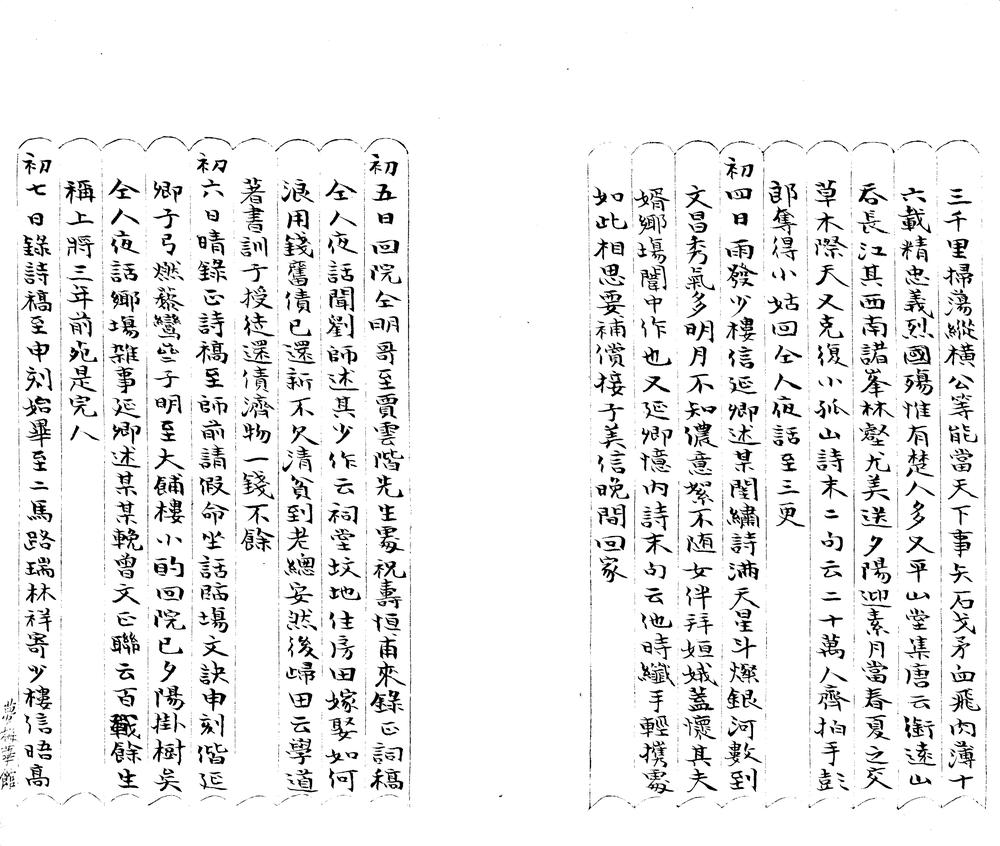 三千里掃蕩縱橫公等能當天下事矢石戈矛血飛肉薄十
六載精忠義烈國殤惟有楚人多又平山堂集唐云銜遠山
吞長江其西南諸峯林壑尤美送夕陽迎素月當春夏之交
草木際天又克復小孤山詩末二句云二十萬人齊拍手彭
郎奪得小姑回仝人夜話至三更
初四日雨發少樓信延卿述某閨繡詩滿天星斗燦銀河數到
文昌秀氣多明月不知儂意絮不随女伴拜姮娥蓋懷其夫
婿鄉塲闈中作也又延卿憶內詩末句云他時纖手輕攜處
如此相思要補償接子美信晚間回家
初五日回院仝明哥至賈雲階先生處祝壽恒甫來錄正詞稿
仝人夜話聞劉師述其少作云祠堂坟地住房田嫁娶如何
浪用錢舊債已還新不欠清貧到老總安然後歸田云學道
著書訓子授徒還債濟物一錢不餘
初六日晴錄正詩稿至師前請假命坐話臨塲文訣申刻偕延
卿子弓燃藜鸞坒子明至大鋪樓小酌回院已夕陽掛樹吳
仝人夜話鄉塲雜事延卿述某某輓曾文正聯云百戰餘生
稱上將三年前死是完人
初七日錄詩稿至申刻始畢至二馬路瑞林祥寄少樓信晤高
梅華館